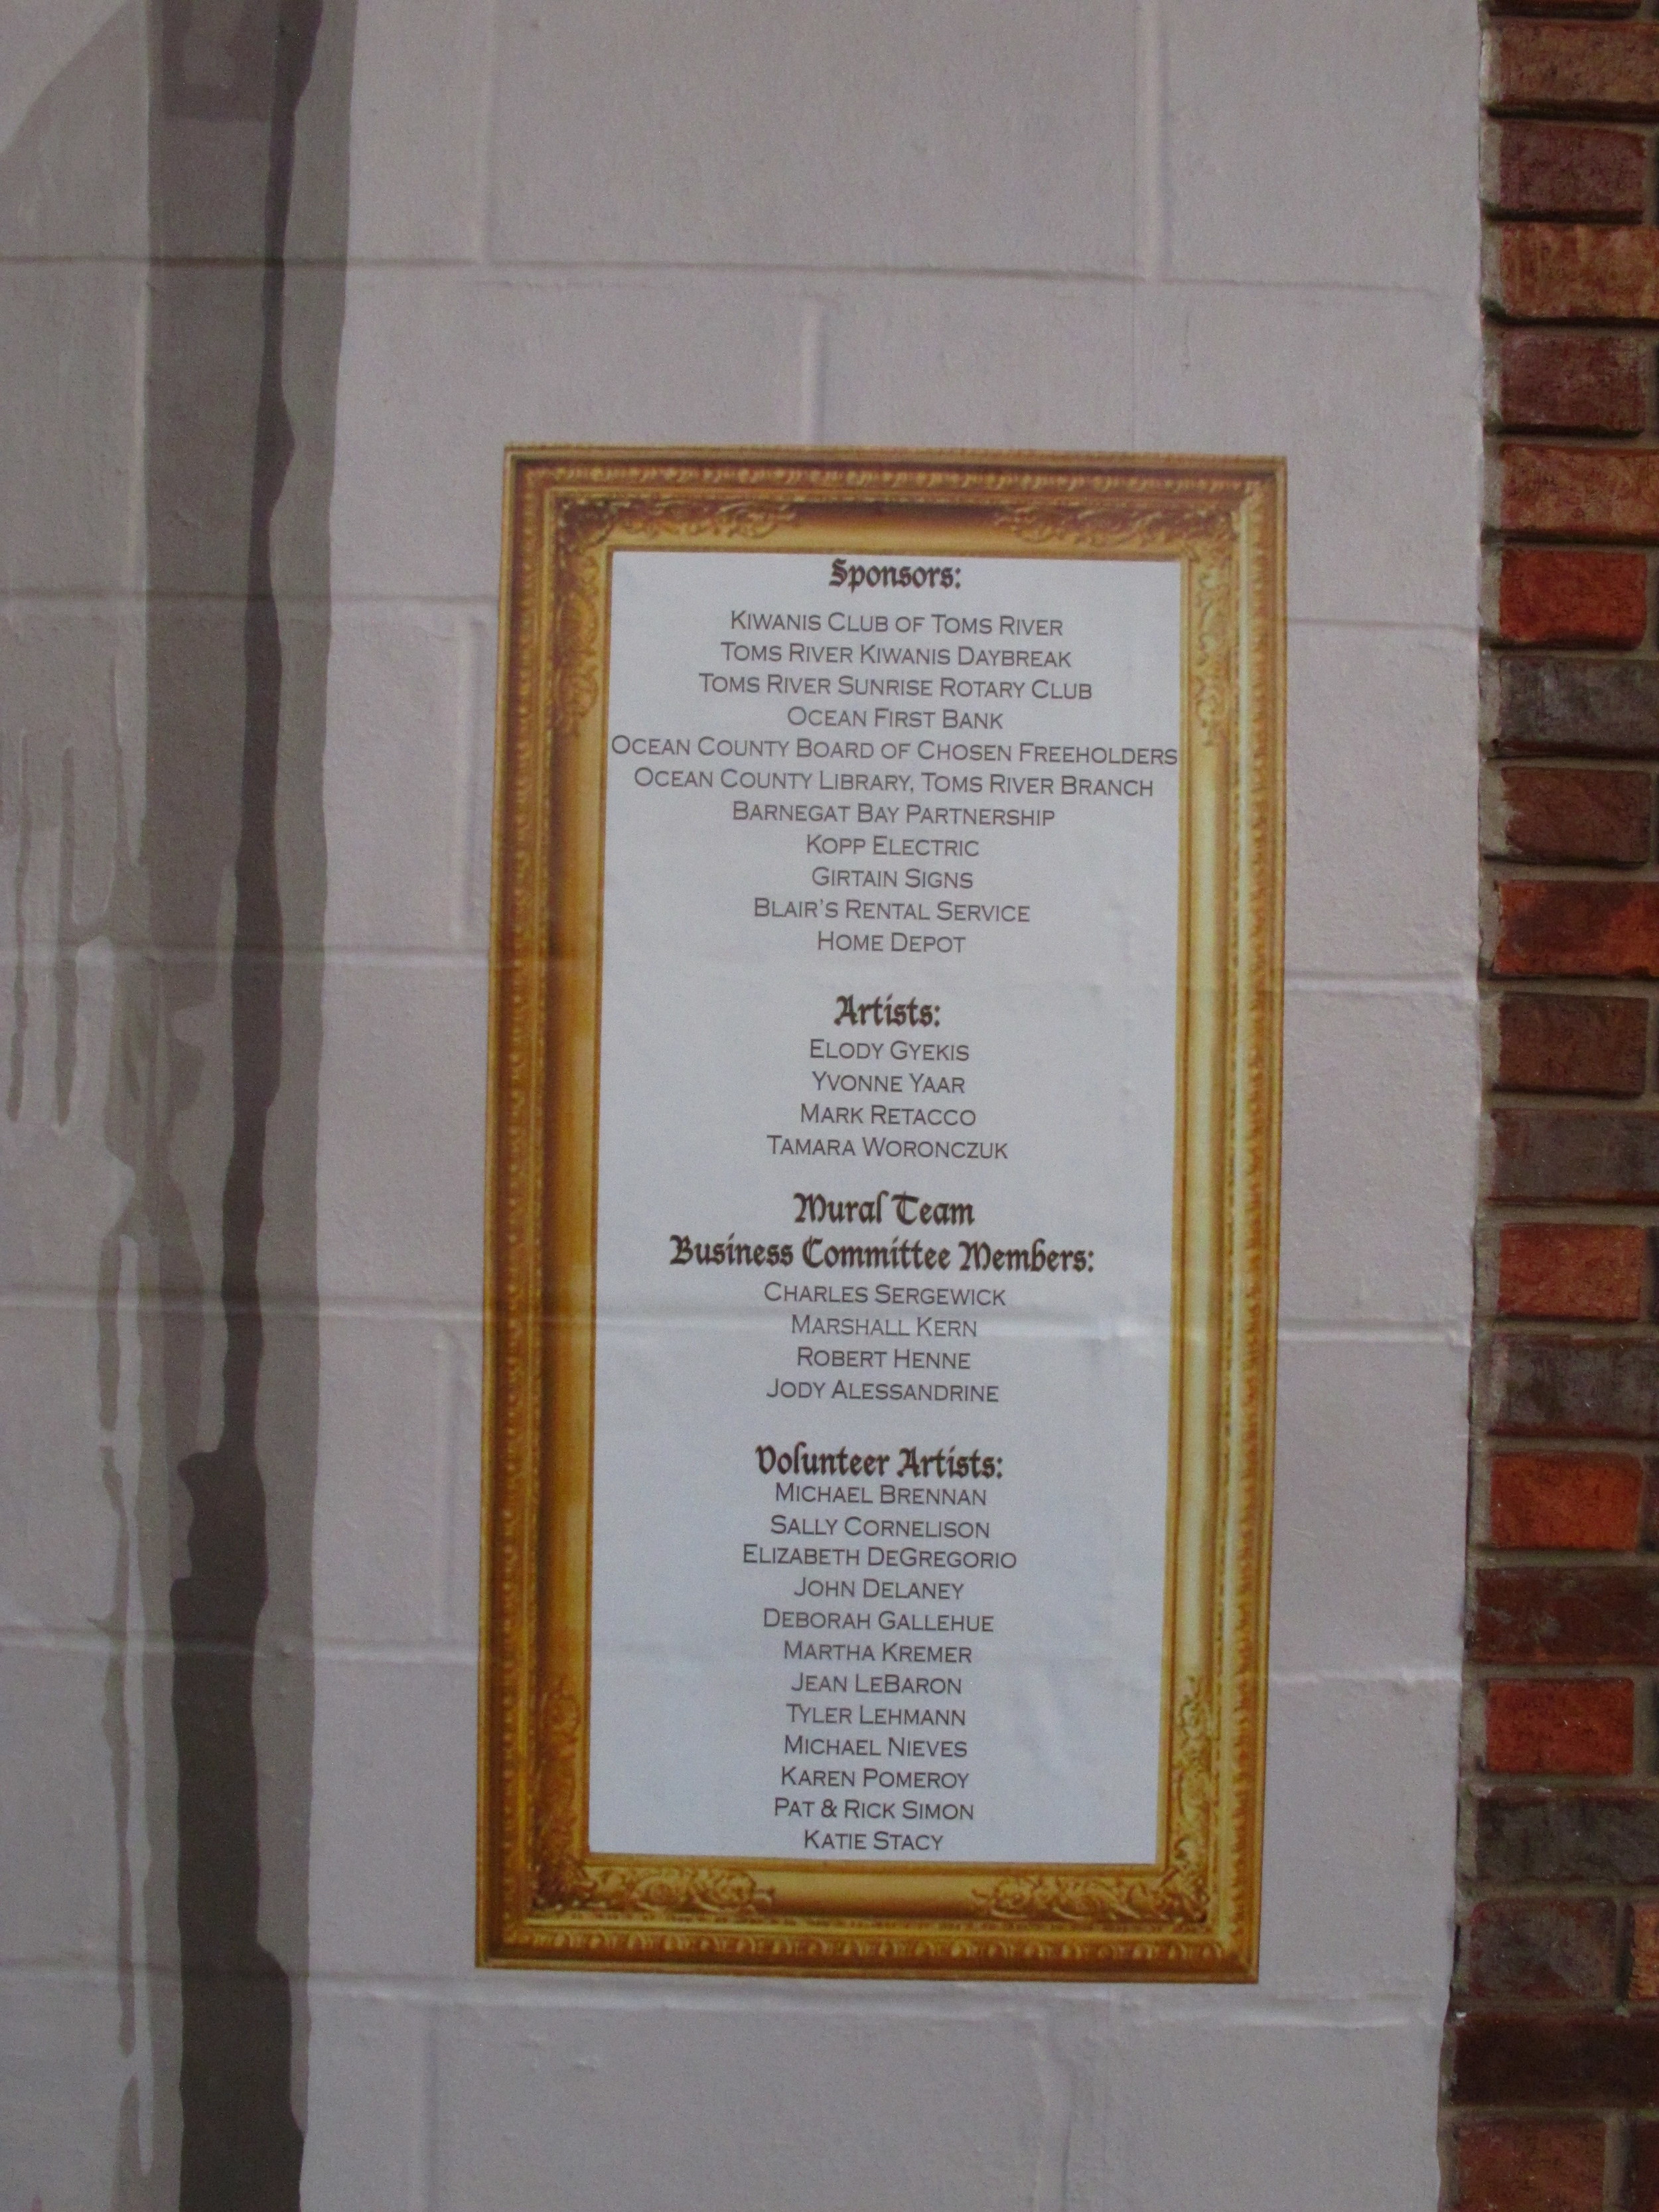 Sponsors:
KIWANIS CLUB OF TOMS RIVER
TOMS RIVER KIWANIS DAYBREAK
TOMS RIVER SUNRISE ROTARY CLUB
OCEAN FIRST BANK
OCEAN COUNTY BOARD OF CHOSEN FREEHOLDERS
OCEAN COUNTY LIBRARY, TOMS RIVER BRANCH
BARNEGAT BAY PARTNERSHIP
KOPP ELECTRIC
GIRTAIN SIGNS
BLAIR'S RENTAL SERVICE
HOME DEPOT
Artists:
ELODY GYEKIS
YVONNE YAAR
MARK RETACCO
TAMARA WORONCZUK
Mural Team
Business Committee Members:
CHARLES SERGEWICK
MARSHALL KERN
ROBERT HENNE
JODY ALESSANDRINE
Volunteer Artists:
MICHAEL BRENNAN
SALLY CORNELISON
ELIZABETH DEGREGORIO
JOHN DELANEY
DEBORAH GALLEHUE
MARTHA KREMER
JEAN LEBARON
TYLER LEHMANN
MICHAEL NIEVES
KAREN POMEROY
PAT & RICK SIMON
KATIE STACY